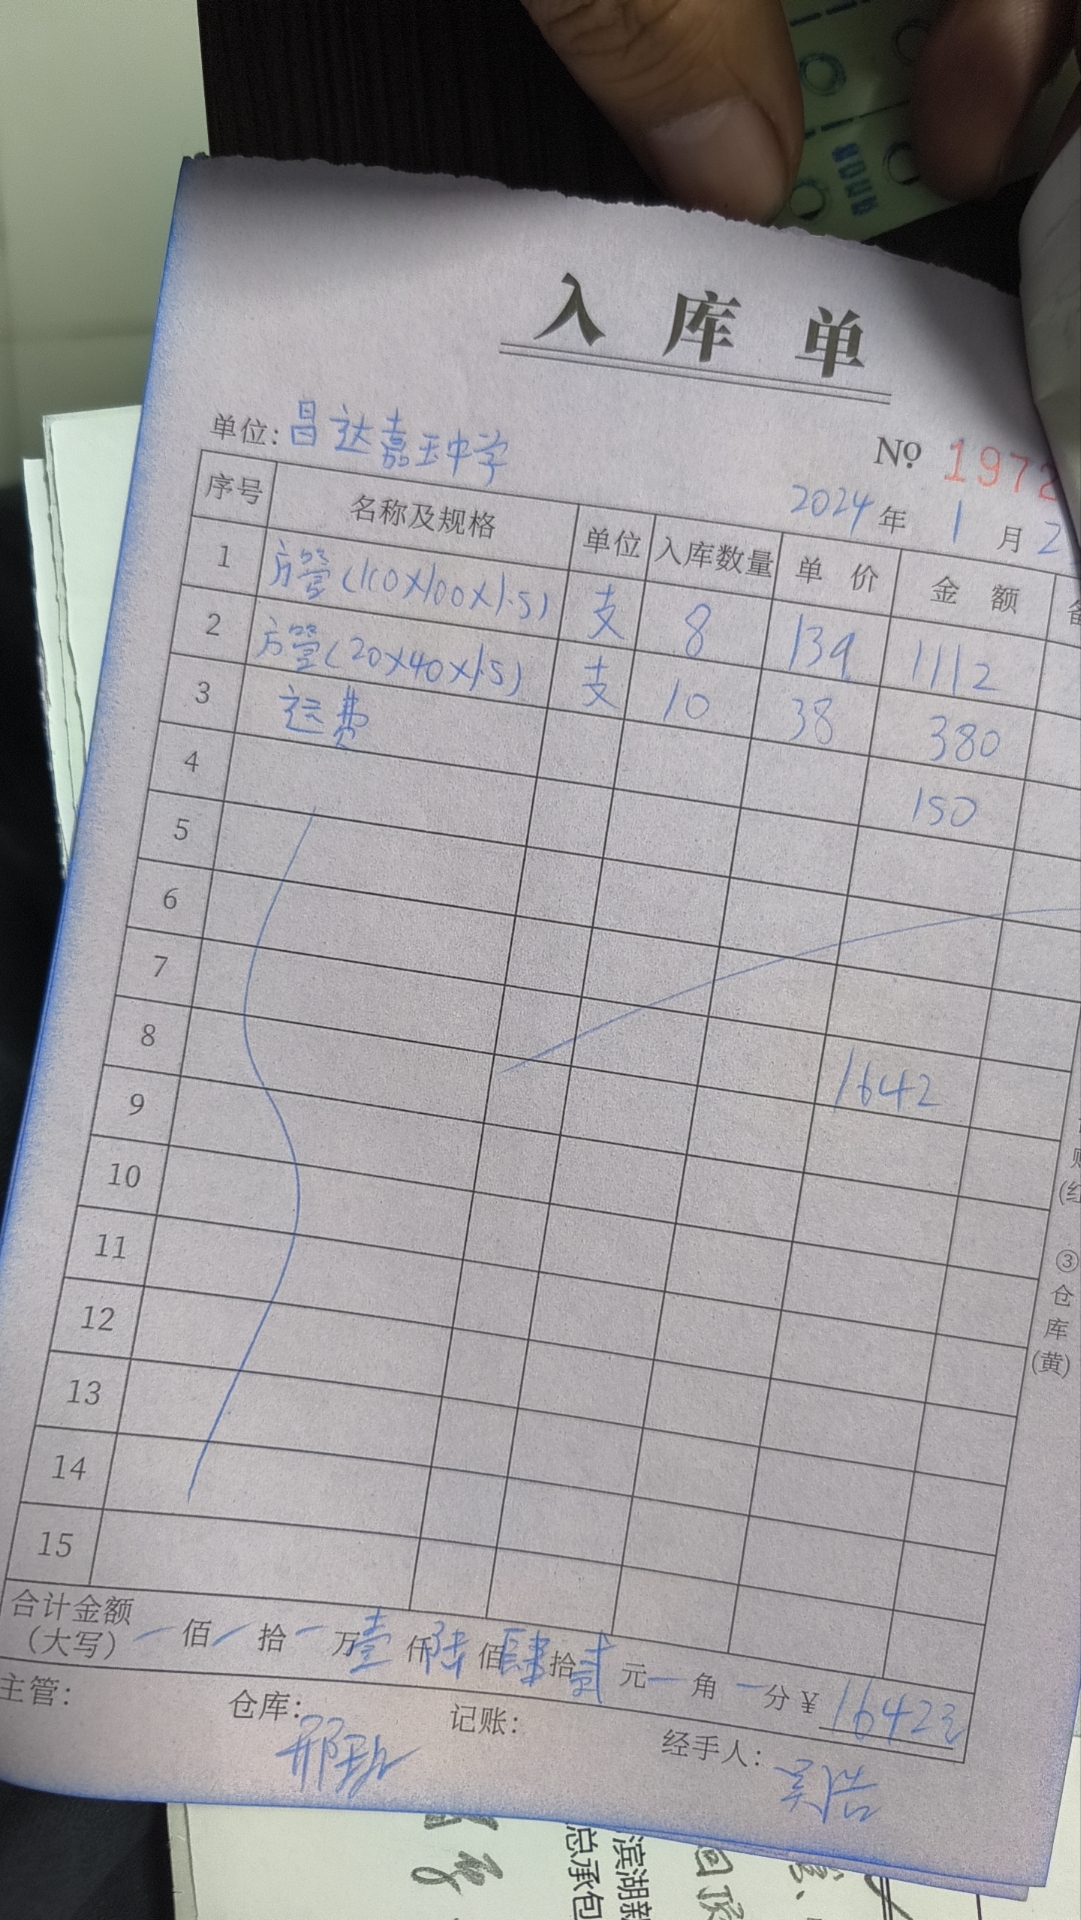 入库单
单位：昌达嘉玉中学
№ 1972
2024年 1月 2
序号 名称及规格 单位 入库数量 单价 金额
1 方管(100×100×1.5) 支 8 139 1112
2 方管(20×40×1.5) 支 10 38 380
3 运费 150
4
5
6
7
8 1642
9
10
11
12
13
14
15
(红
③仓库(黄)
合计金额（大写）一佰一拾一万壹仟陆佰肆拾贰元一角一分¥1642元
主管： 仓库： 记账： 经手人：
滨湖新
总承包